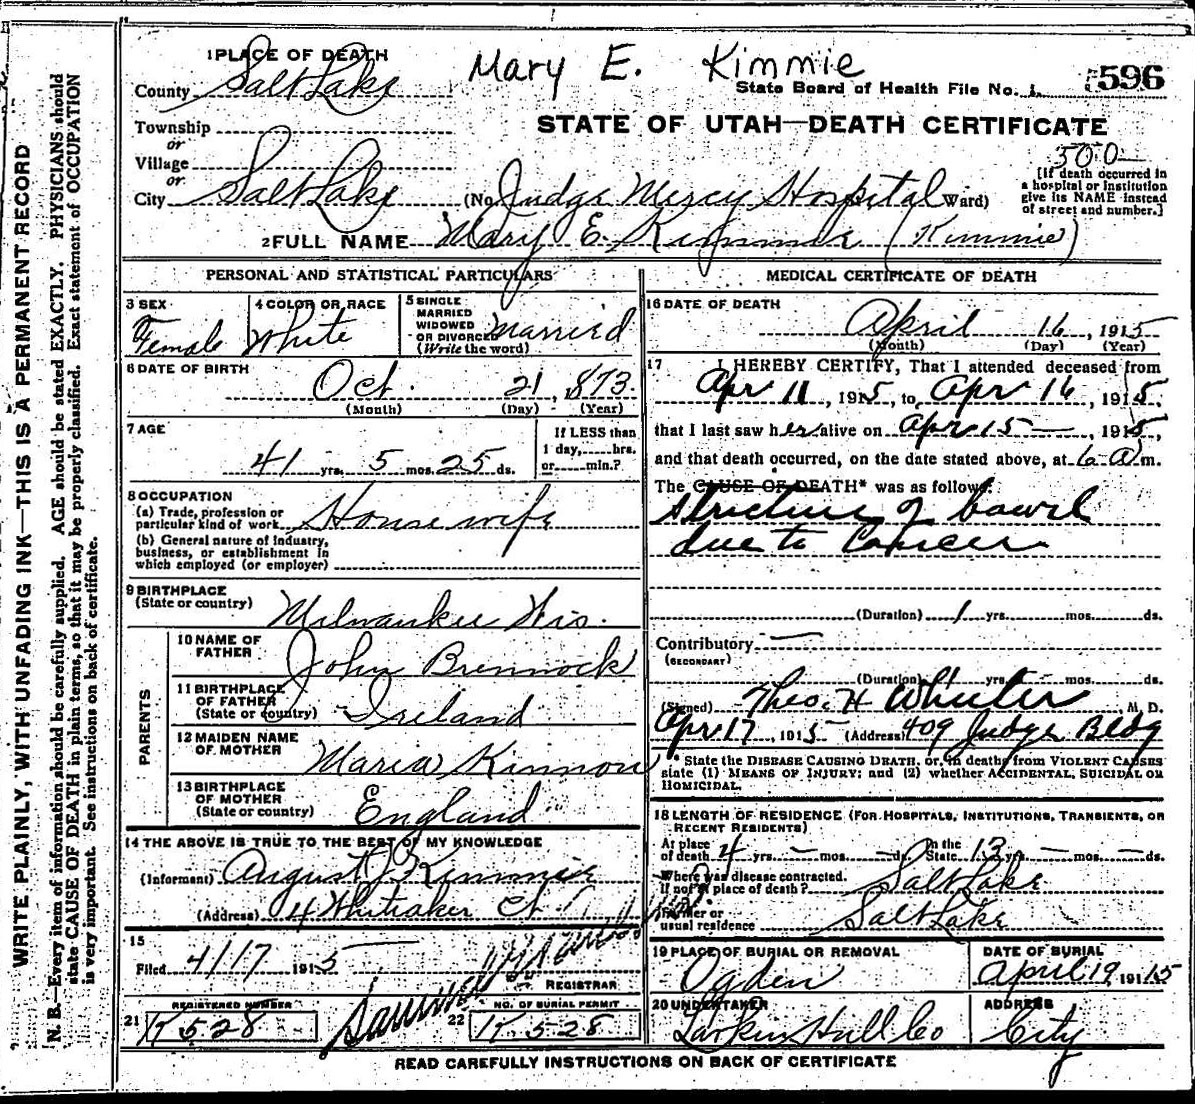 WRITE PLAINLY, WITH UNFADING INK—THIS IS A PERMANENT RECORD
N. B.—Every item of information should be carefully supplied. AGE should be stated EXACTLY. PHYSICIANS should
state CAUSE OF DEATH in plain terms, so that it may be properly classified. Exact statement of OCCUPATION
is very important. See instructions on back of certificate.
1 PLACE OF DEATH
Mary E. Kimmie
County Salt Lake
State Board of Health File No. 596
Township
or
Village
or
City Salt Lake
STATE OF UTAH—DEATH CERTIFICATE
500—
(No. Judge Mercy Hospital Ward)
[If death occurred in
a hospital or institution
give its NAME instead
of street and number.]
2 FULL NAME Mary E. Kimmie (Kimmie)
PERSONAL AND STATISTICAL PARTICULARS
3 SEX
Female
4 COLOR OR RACE
White
5 SINGLE
MARRIED
WIDOWED
OR DIVORCED
(Write the word)
Married
6 DATE OF BIRTH
Oct. 21, 1873.
(Month) (Day) (Year)
7 AGE
41 yrs. 5 mos. 25 ds.
If LESS than
1 day,......hrs.
or......min.?
8 OCCUPATION
(a) Trade, profession or
particular kind of work House wife
(b) General nature of industry,
business, or establishment in
which employed (or employer)
9 BIRTHPLACE
(State or country) Milwaukee Wis.
PARENTS
10 NAME OF
FATHER John Brennock
11 BIRTHPLACE
OF FATHER
(State or country) Ireland
12 MAIDEN NAME
OF MOTHER Maria Kinnon
13 BIRTHPLACE
OF MOTHER
(State or country) England
14 THE ABOVE IS TRUE TO THE BEST OF MY KNOWLEDGE
(Informant) August J Kimmie
(Address) 4 Whitaker Ct.
15
Filed 4/17 1915
REGISTRAR
REGISTERED NUMBER
21 K 528
NO. OF BURIAL PERMIT
22 K 528
MEDICAL CERTIFICATE OF DEATH
16 DATE OF DEATH
April 16, 1915
(Month) (Day) (Year)
17 I HEREBY CERTIFY, That I attended deceased from
Apr 11, 1915, to Apr 16, 1915,
that I last saw her alive on Apr 15—, 1915,
and that death occurred, on the date stated above, at 6 a m.
The CAUSE OF DEATH* was as follows:
stricture of bowel
due to Cancer
(Duration) 1 yrs. mos. ds.
Contributory —
(SECONDARY)
(Duration) yrs. mos. ds.
(Signed) Theo. H Whuter, M. D.
Apr 17, 1915 (Address) 409 Judge Bldg
* State the DISEASE CAUSING DEATH, or, in deaths from VIOLENT CAUSES
state (1) MEANS OF INJURY; and (2) whether ACCIDENTAL, SUICIDAL OR
HOMICIDAL.
18 LENGTH OF RESIDENCE (FOR HOSPITALS, INSTITUTIONS, TRANSIENTS, OR
RECENT RESIDENTS)
At place
of death 4 yrs. — mos. — ds.
In the
State 13 yrs. — mos. — ds.
Where was disease contracted,
If not at place of death? Salt Lake
Former or
usual residence Salt Lake
19 PLACE OF BURIAL OR REMOVAL
Ogden
DATE OF BURIAL
April 19, 1915
20 UNDERTAKER
Larkin Hull Co
ADDRESS
City
READ CAREFULLY INSTRUCTIONS ON BACK OF CERTIFICATE